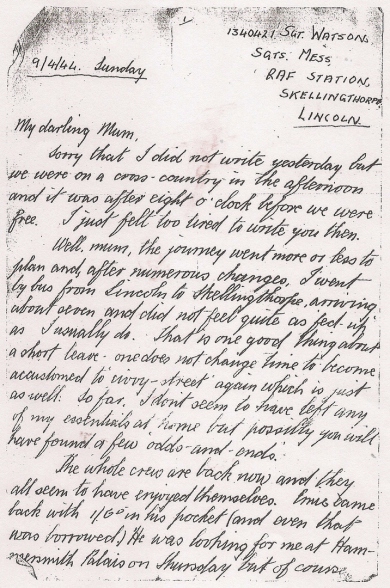 1340421 Sgt. Watson,
Sgts. Mess
RAF Station,
Skellingthorpe
Lincoln.
9/4/44. Sunday
My darling Mum,
Sorry that I did not write yesterday but
we were on a cross-country in the afternoon
and it was after eight o'clock before we were
free. I just felt too tired to write you then.
Well, mum, the journey went more or less to
plan and, after numerous changes, I went
by bus from Lincoln to Skellingthorpe, arriving
about seven and did not feel quite as fed-up
as I usually do. That is one good thing about
a short leave - one does not change time to become
accustomed to civvy-street again which is just
as well. So far, I don't seem to have left any
of my essentials at home but possibly you will
have found a few odds-and-ends.
The whole crew are back now and they
all seem to have enjoyed themselves. Ernie came
back with 1/6ᴰ in his pocket (and even that
was borrowed!) He was looking for me at Ham-
mersmith Palais on Thursday but of course